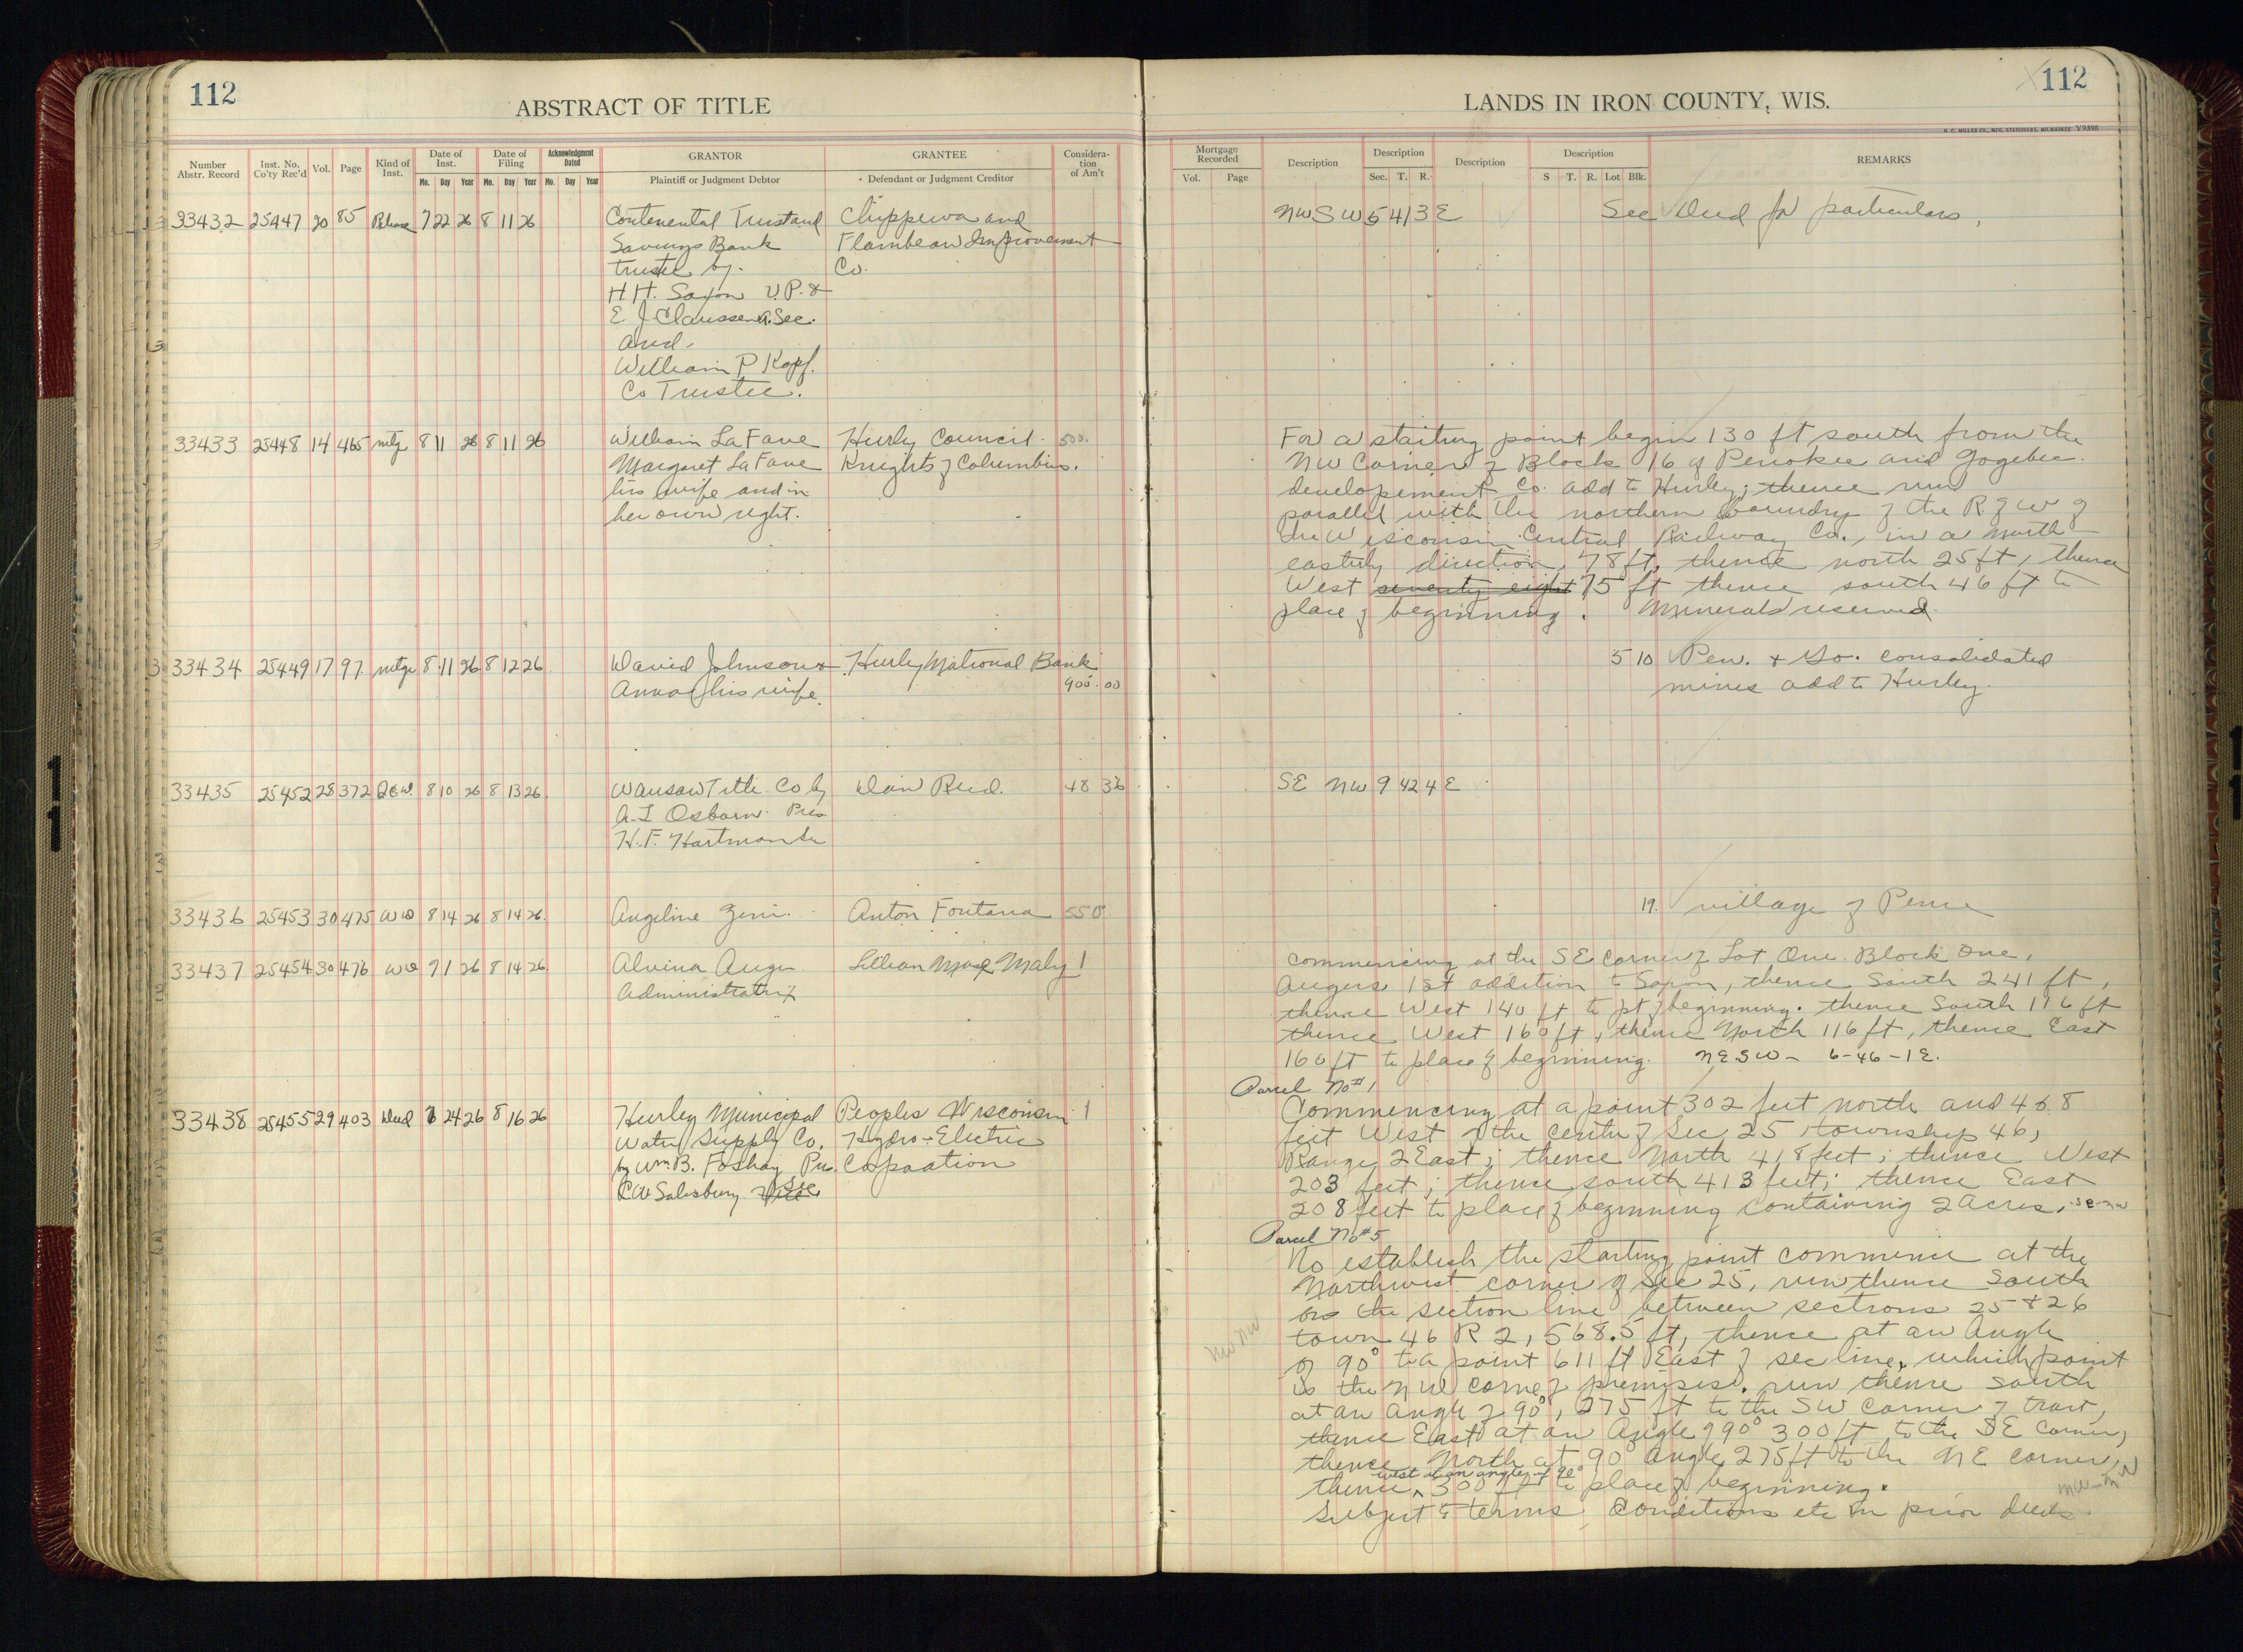 112
ABSTRACT OF TITLE
Number Abstr. Record
Inst. No. Co'ty Rec'd
Vol.
Page
Kind of Inst.
Date of Inst.
Mo. Day Year
Date of Filing
Mo. Day Year
Acknowledgment Dated
Mo. Day Year
GRANTOR
Plaintiff or Judgment Debtor
GRANTEE
Defendant or Judgment Creditor
Considera-tion of Am't
33432 25447 20 85 Release 7 22 26 8 11 26 Contenental Trust and Chippewa and
Savings Bank Flambeau Improvement
trustee by Co.
H.H. Saxon V.P. &
E. J Claussen A. Sec.
and
William P Kopf.
Co Trustee.
33433 25448 14 465 mtg 8 11 26 8 11 26 William La Fave Hurley Council 500.
Margaret La Fave Knights of Columbus.
his wife and in
her own right.
3 33434 25449 17 97 mtge 8 11 26 8 12 26 David Johnson & Hurley National Bank
Anna his wife. 900.00
33435 25452 28 372 QCD. 8 10 26 8 13 26 Wausau Title Co by Dan Reid. 48 36
A. L Osborn Pres
H.F. Hartman
33436 25453 30 475 WD 8 14 26 8 14 26 Angeline Zeni. Anton Fontana 550
33437 25454 30 476 WD 7 1 26 8 14 26 Alvina Auger Lillian Maly 1
Administratrix
33438 25455 29 403 Deed 24 26 8 16 26 Hurley Municipal Peoples Wisconsin 1
Water Supply Co. Hydro-Electric
by Wm. B. Foshay Pres. Corpoation
C W Salisbury Sec
112
LANDS IN IRON COUNTY, WIS.
H. C. MILLER CO., MFG. STATIONERS, MILWAUKEE Y9398
Mortgage Recorded
Vol. Page
Description
Description
Sec. T. R.
Description
Description
S T. R. Lot Blk.
REMARKS
NW SW 5 41 3 E See Deed for particulars,
For a staiting point begin 130 ft south from the
NW Corner of Block 16 of Penokee and Gogebec
developement Co. add to Hurley; thence run
parallel with the northern boundry of the R of W of
the Wisconsin Central Railway Co., in a north
easterly direction, 78 ft, thence north 25 ft, thence
West seventy eight 75 ft thence south 46 ft to
place of beginning. Minerals reserved
5 10 Pen. & Go. consolidated
mines add to Hurley.
SE NW 9 42 4 E
19. village of Pence
commencing at the SE Corner of Lot One Block One,
Augers 1st addition to Saxon, thence South 241 ft,
thence West 140 ft to pt of beginning. thence South 116 ft
thence West 160 ft, thence North 116 ft, thence East
160 ft to place of beginning. NE SW - 6-46-1E.
Parcel No #1
Commencing at a point 302 feet north and 468
feet West of the Center of Sec 25 township 46,
Range 2 East; thence North 418 feet; thence West
203 feet; thence south 413 feet; thence East
208 feet to place of beginning containing 2 Acres, SE-NW
Parcel No #5
No establish the starting point commence at the
Northwest corner of Sec 25, run thence South
on the section line between sections 25 & 26
town 46 R 2, 568.5 ft, thence at an Angle
of 90° to a point 611 ft East of sec line, which point
is the NW corner of premises. run thence south
at an angle of 90°, 275 ft to the SW corner of tract,
thence East at an Angle of 90° 300 ft to the SE corner,
thence North at 90° angle 275 ft to the NE corner,
west at an angle of 90°
thence ^ 300 ft to place of beginning.
Subject to terms, Conditions etc in prior deeds
NW NW
NW-NW